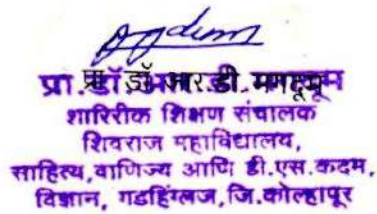 प्रा. डॉ. आर. डी. मगदूम
शारिरीक शिक्षण संचालक
शिवराज महाविद्यालय,
साहित्य, वाणिज्य आणि डी.एस.कदम,
विज्ञान, गडहिंग्लज, जि.कोल्हापूर